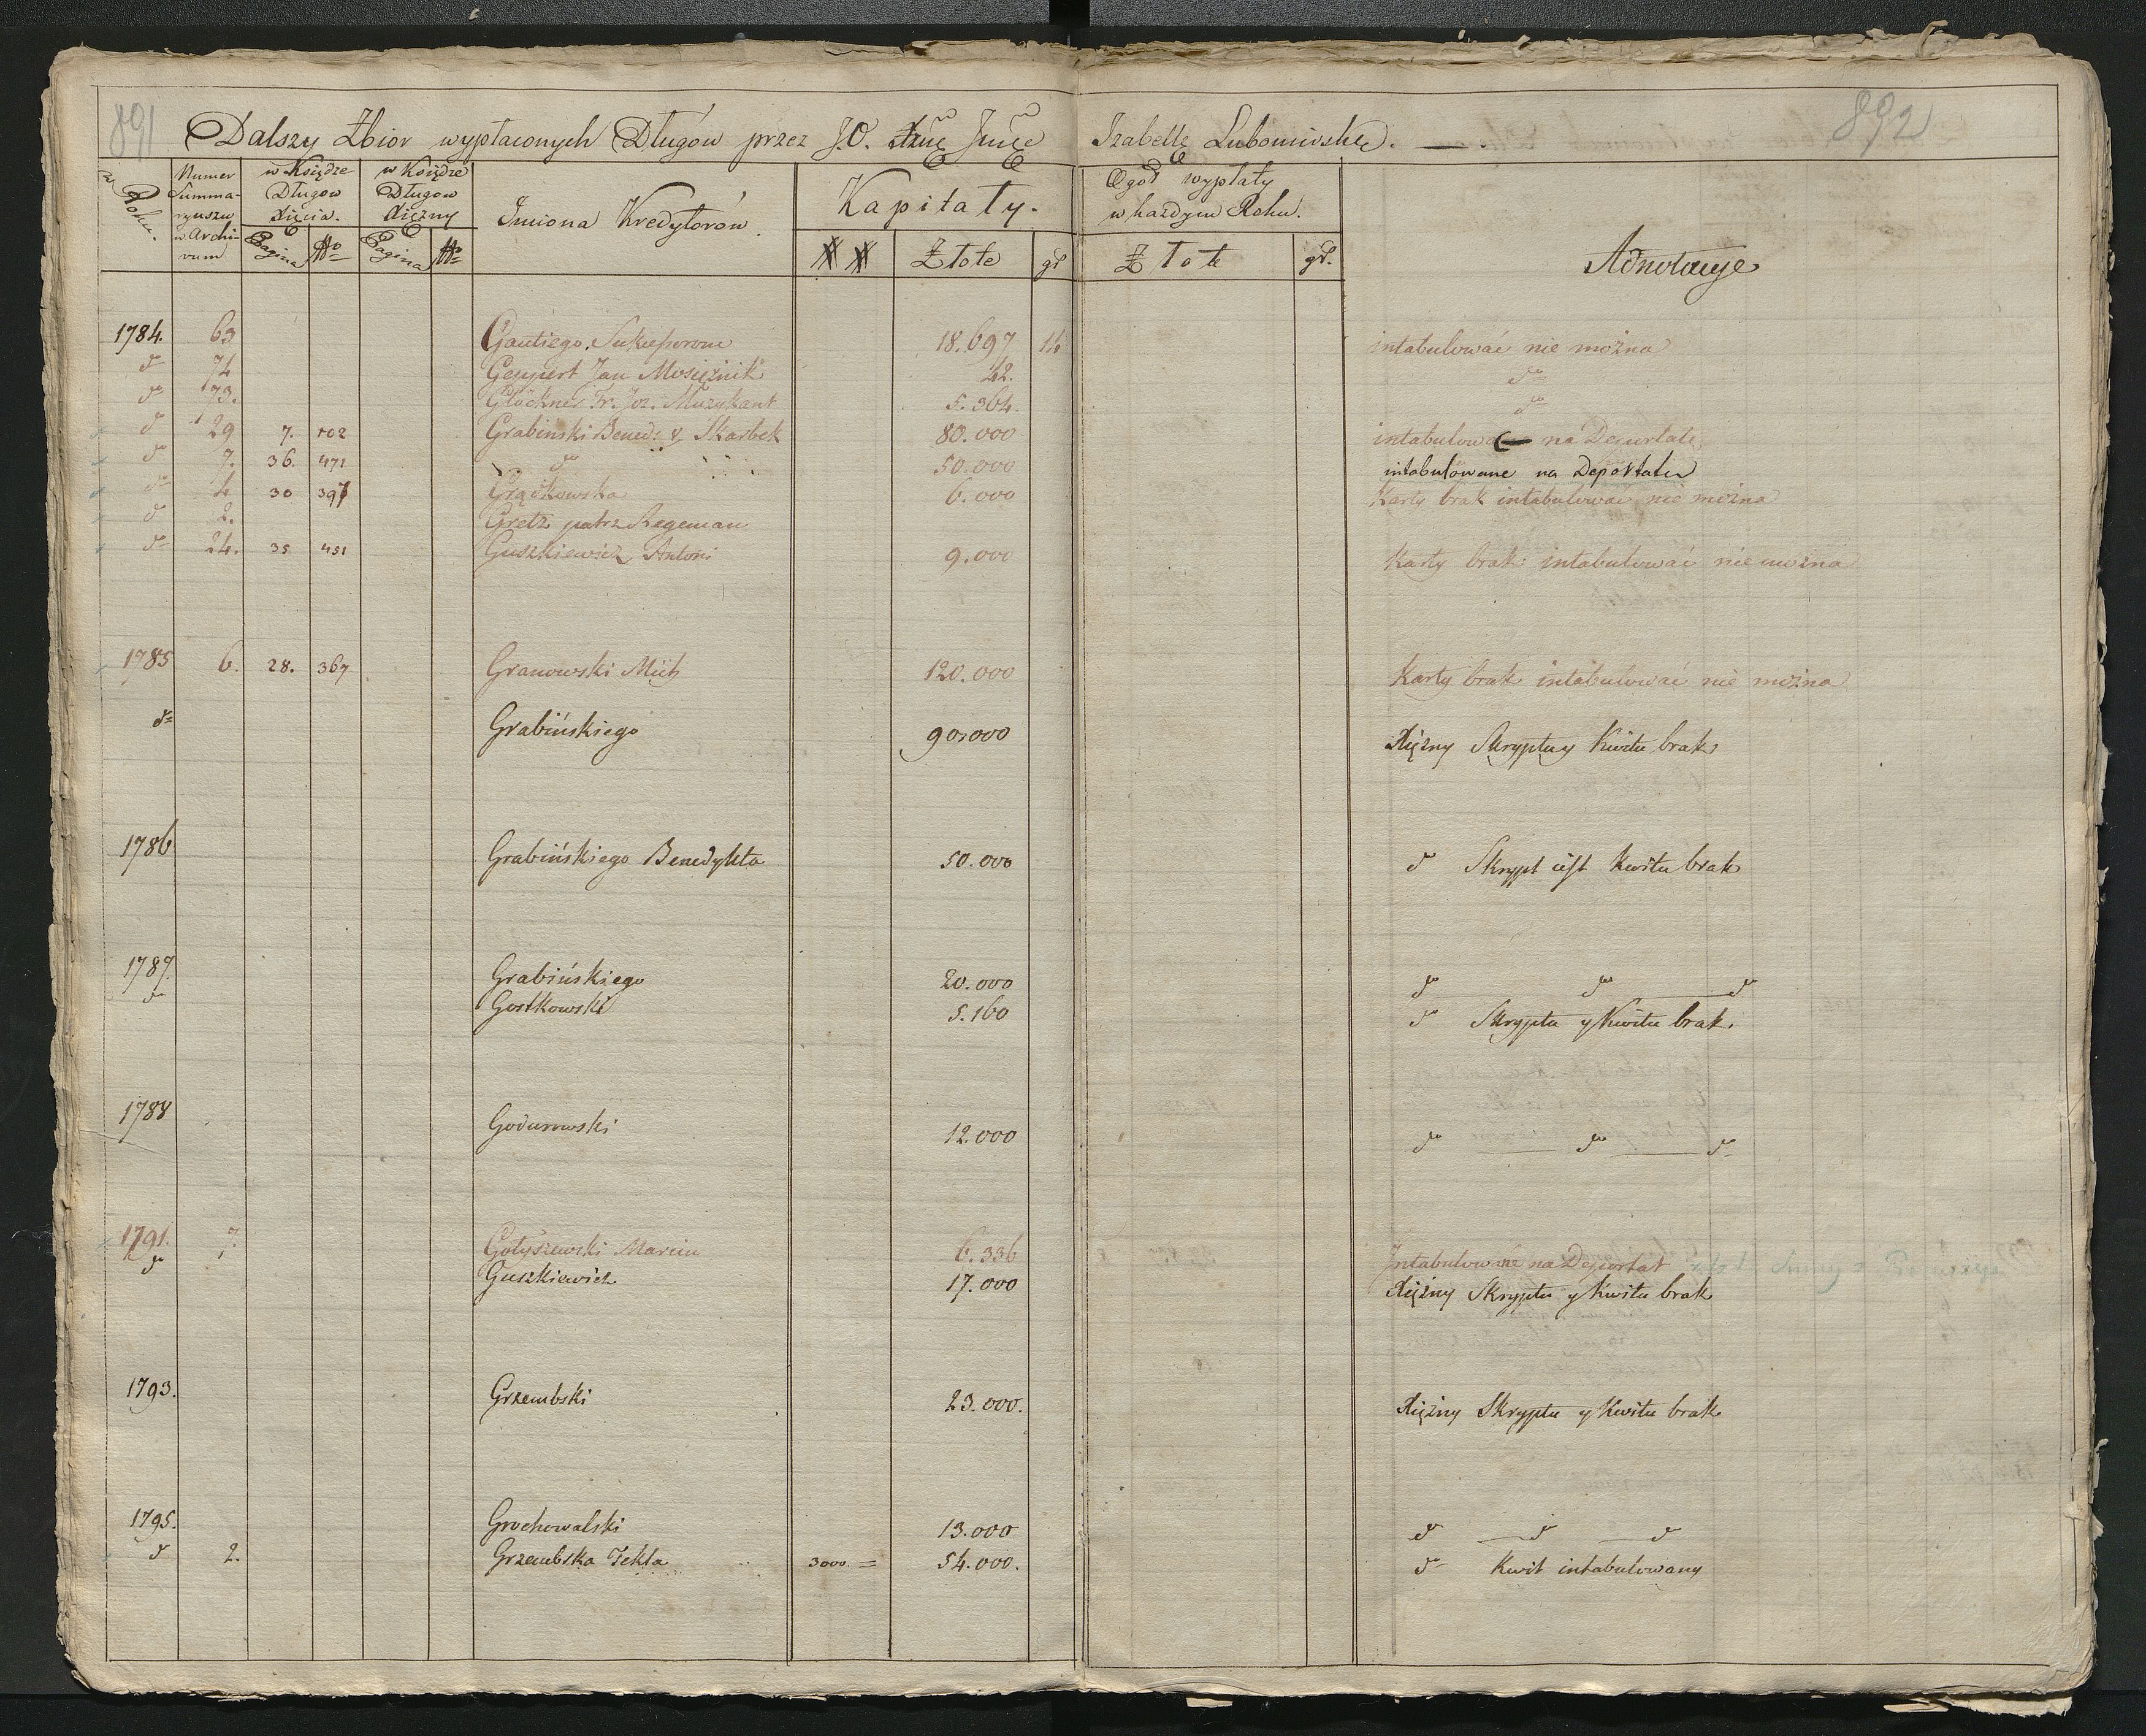 891
892
Dalszy Zbior wypłaconych Długow przez J.O. Xżnę Jmcę Izabellę Lubomirską.
w Roku.
Numer Summaryuszu w Archivum
w Księdze Długow Xięcia.
w Księdze Długow Xiężny
Pagina No Pagina No
Imiona Kredytorow.
Kapitały.
## Złote gr
Ogoł wypłaty w każdym Roku.
Złote gr.
Adnotacye
1784. 63 18.697 14 intabulować nie można
do 74 Geppert Jan Mosiężnik 42. do
do 73. Glöckner Fr. Joz. Muzykant 5.364. do
do 29 7. 102 Grabinski Bened: Skarbek 80.000 na Deportate
do 7. 36. 471 do 50.000 intabulowane na Deportatu
do 4 30 397 Grądkowska 6.000 Karty brak intabulować nie można
do 2. Gretz patrz Szegeman
do 24. 35 451 Guszkiewicz Antoni 9.000 Karty brak intabulować nie można
1785 6. 28. 367 Granowski Mich 120.000 Karty brak intabulować nie można
do Grabińskiego 90.000 Xiężny Skryptu y Kwitu brak
1786 Grabińskiego Benedykta 50.000 do Skrypt iest Kwitu brak
1787. Grabińskiego 20.000 do do do
do Gostkowski 5.160 do Skryptu y Kwitu brak.
1788 Godurowski 12.000 do do do
1791. 7. Gołyszewski Marcin 6.336 Intabulowane na Deportat
do Guszkiewicz 17.000 Xiężny Skryptu y Kwitu brak
1793. Grzembski 23.000. Xiężny Skryptu y Kwitu brak
1795. Grochowalski 13.000 do do do
do 2. Grzembska Tekla 3000. = 54.000. do Kwit intabulowany